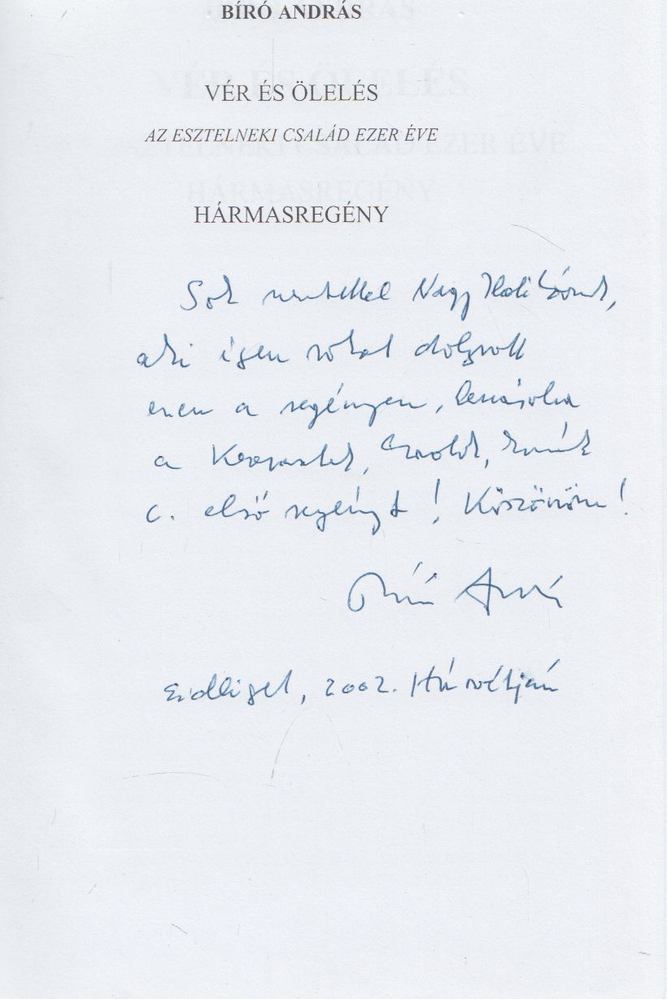 BÍRÓ ANDRÁS
VÉR ÉS ÖLELÉS
AZ ESZTELNEKI CSALÁD EZER ÉVE
HÁRMASREGÉNY
Sok szeretettel Nagy
aki igen sokat dolgozott
ezen a regényen, lemásolva
a
c. első regényt! Köszönöm!
Bíró András
Erdliget, 2002. Húsvétján